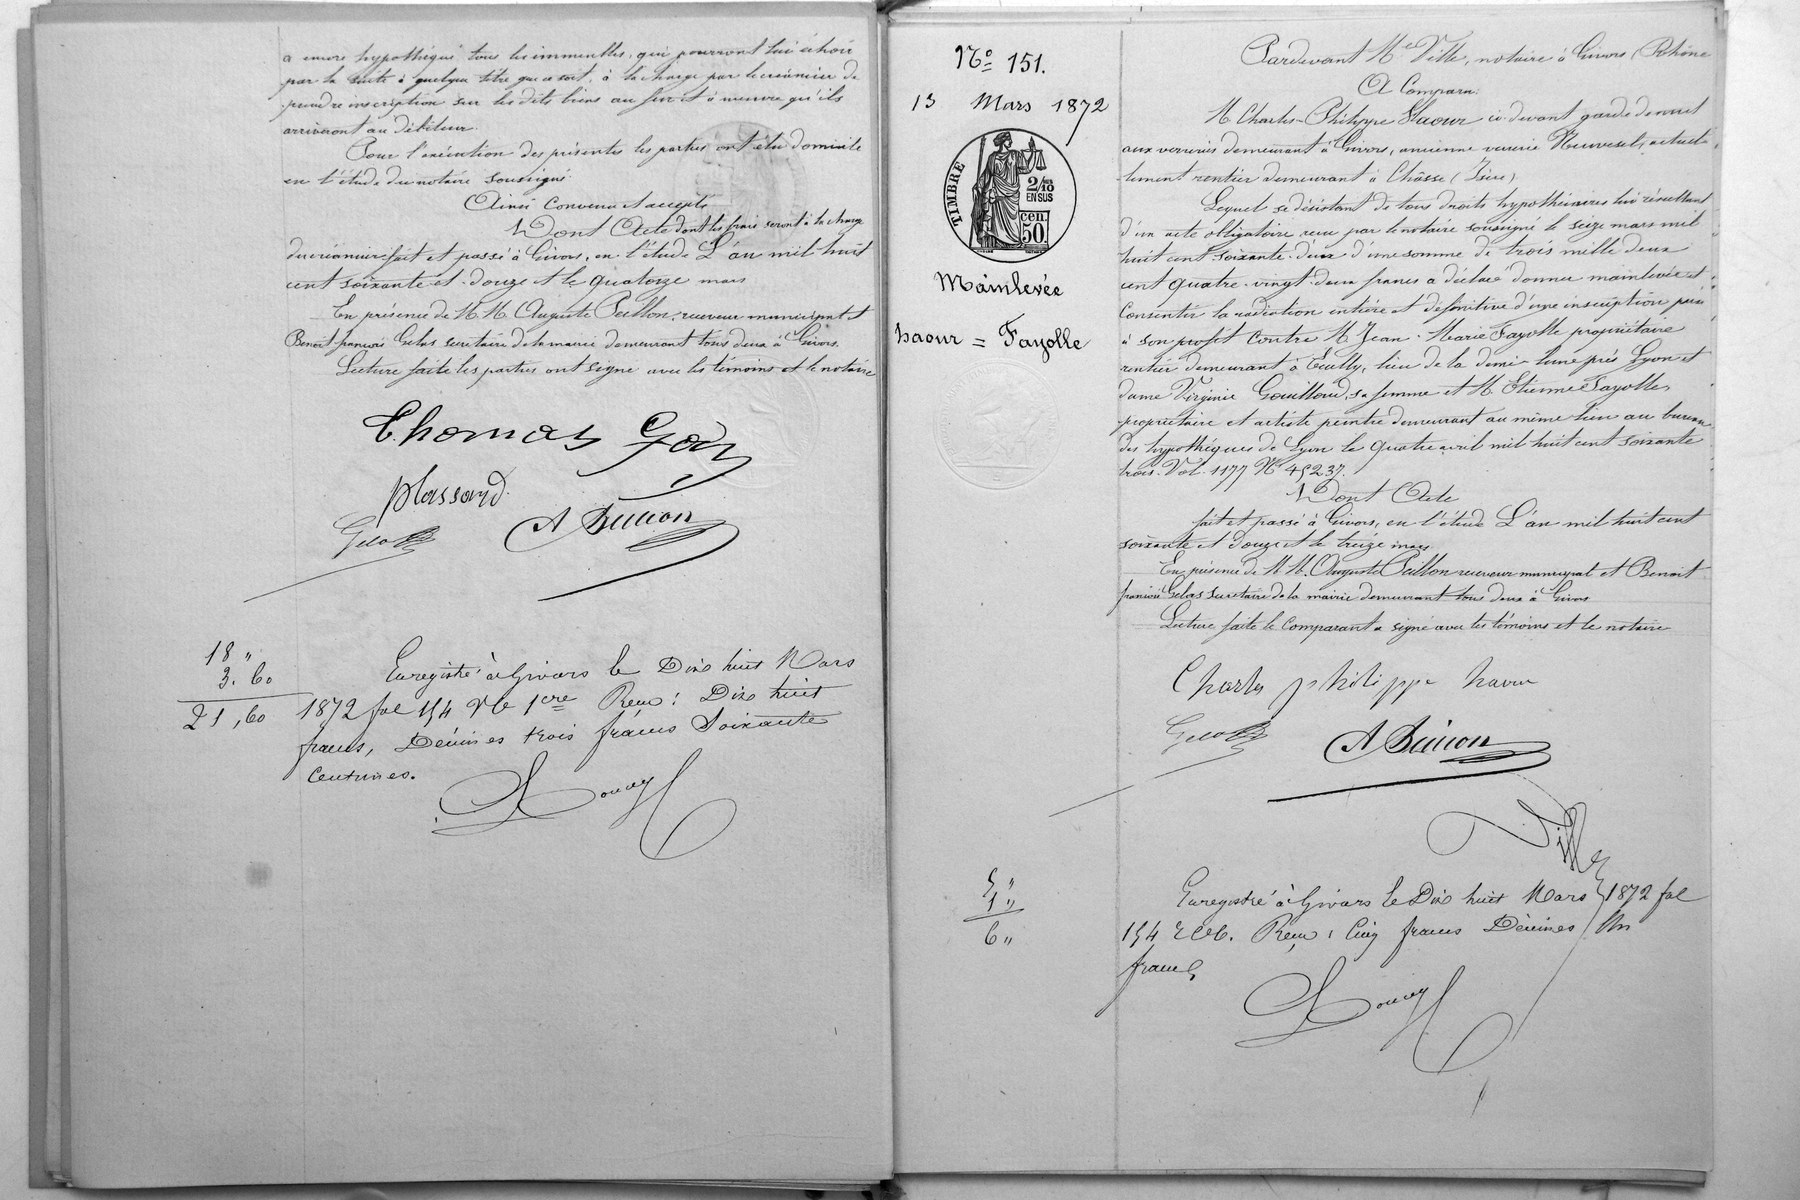 a encore hypothéqué tous les immeubles qui pourront lui échoir
par la suite à quelque titre que ce soit, à la charge par le créancier de
prendre inscription sur les dits biens au fur et à mesure qu'ils
arriveront au débiteur.
Pour l'exécution des présentes les parties ont élu domicile
en l'étude du notaire soussigné.
Ainsi convenu et accepté
Dont Acte dont les frais seront à la charge
du créancier fait et passé à Givors, en l'étude L'an mil huit
cent soixante et douze et le quatorze mars
En présence de M.M. Auguste Peillon, receveur municipal et
Benoit françois Gelas secrétaire de la mairie demeurant tous deux à Givors.
Lecture faite les parties ont signé avec les témoins et le notaire
Thomas
Plassard
Gelas
A Peillon
18 "
3. 60
21, 60
Enregistré à Givors le Dix huit Mars
1872 fol 154 Vo Cre Reçu : Dix huit
francs, Décimes trois francs Soixante
Centimes.
No 151.
13 Mars 1872
TIMBRE
2/10
EN SUS
cen.
50.
Mainlevée
haour = Fayolle
Pardevant Me Ville, notaire à Givors (Rhône
A Comparu:
M Charles-Philippe Haour ci-devant garde de nuit
aux verreries demeurant à Givors, ancienne verrerie Neuvesel, actuel-
lement rentier demeurant à Chasse (Isère)
Lequel se désistant de tous droits hypothécaires lui résultant
d'un acte obligatoire reçu par le notaire soussigné le seize mars mil
huit cent soixante-deux d'une somme de trois mille deux
cent quatre-vingt-deux francs a déclaré donner mainlevée et
Consentir la radiation entière et définitive d'une inscription prise
à son profit contre M Jean-Marie Fayolle propriétaire
rentier demeurant à Ecully, lieu de la demi-lune près Lyon et
dame Virginie Gouilloud, sa femme et M. Etienne Fayolle,
propriétaire et artiste peintre demeurant au même lieu au bureau
des hypothèques de Lyon le quatre avril mil huit cent soixante
trois. Vol. 1177 No 45237.
Dont Acte
fait et passé à Givors, en l'étude L'an mil huit cent
soixante et douze et le treize mars
En présence de M.M. Auguste Peillon receveur municipal et Benoit
françois Gelas secrétaire de la mairie demeurant tous deux à Givors
Lecture faite le Comparant a signé avec les témoins et le notaire
Charles philippe haour
Gelas
A Peillon
Ville
5 "
1 "
6 "
Enregistré à Givors le Dix huit Mars 1872 fol
154 Reçu : Cinq francs Décimes Un
franc